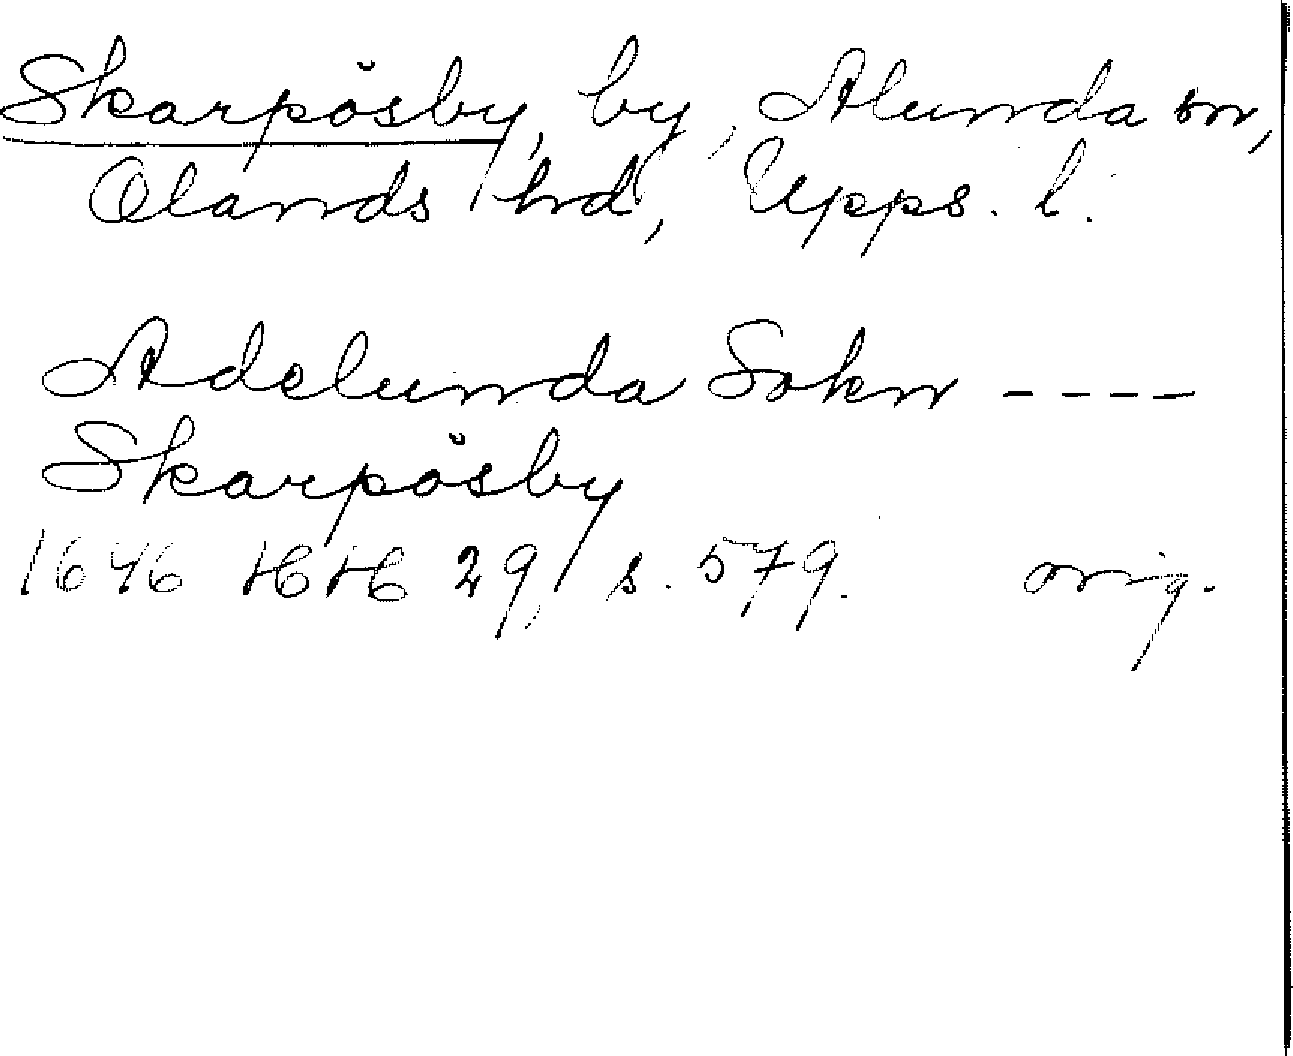 Skarpösby, by, Alunda sn,
Olands hd, Upps. l.
Adelunda Sokn ----
Skarpösby
1646 HH 29, s. 579. orig.